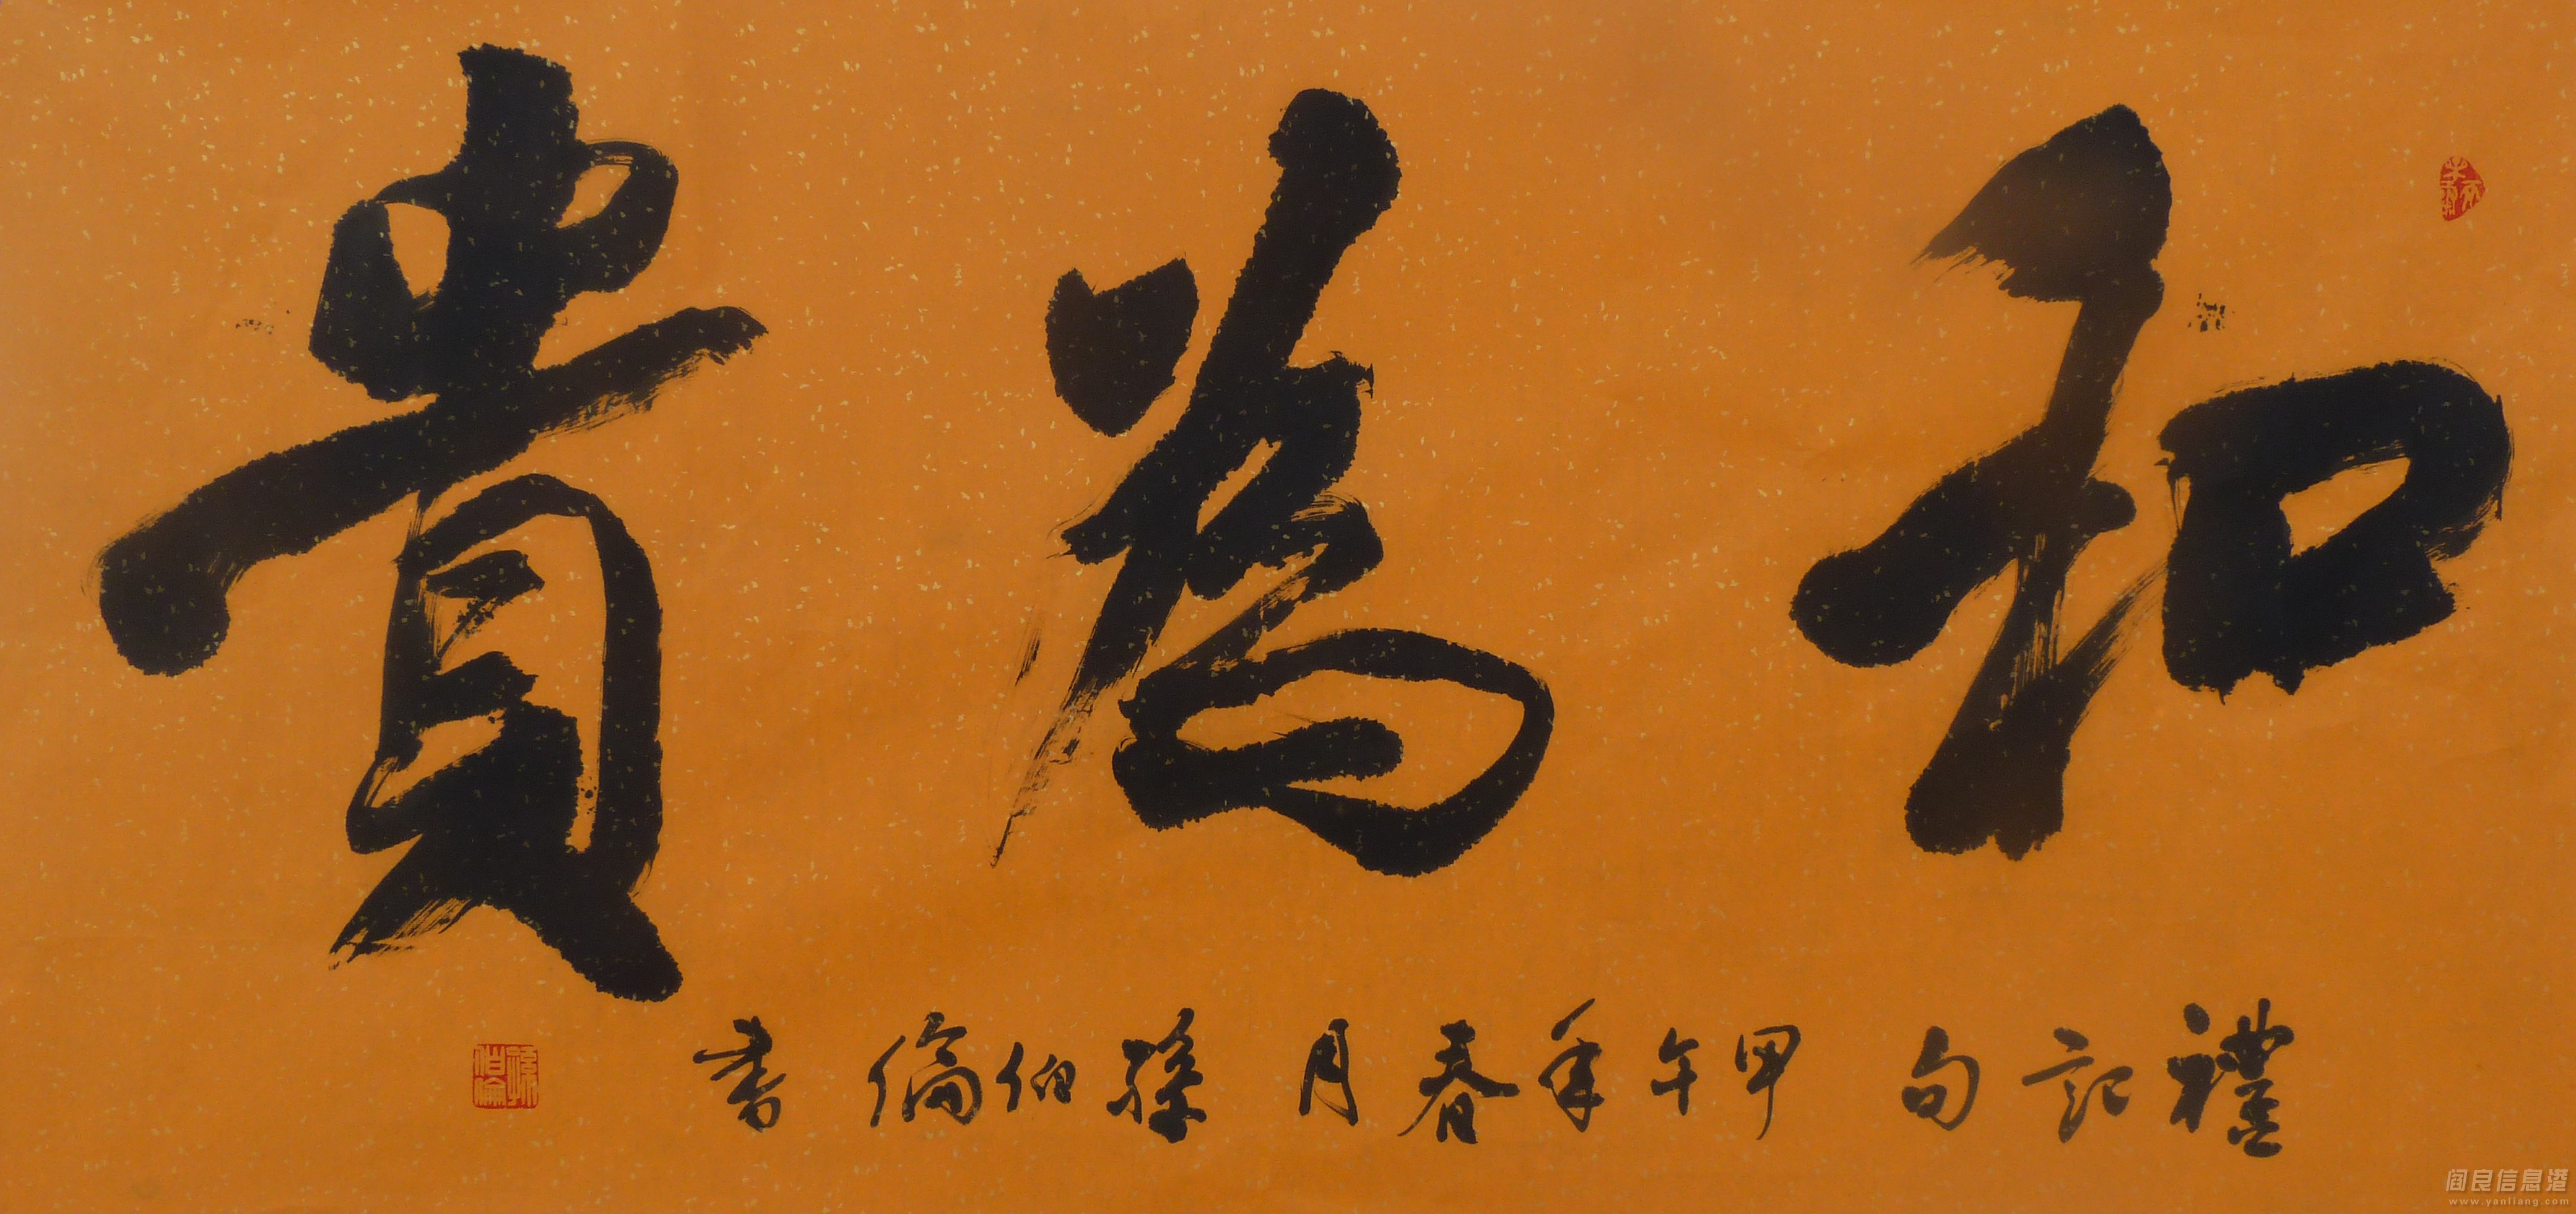 和為貴
禮記句 甲午年春月 孫伯倫書
孫伯倫
阎良信息港
www.yanliang.com